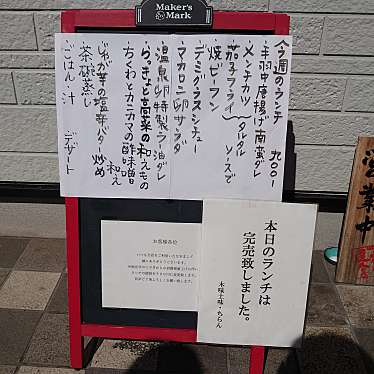 Maker's
Mark
今週のランチ 900-
手羽中唐揚げ南蛮ダレ
メンチカツ
茄子フライ タルタルソースで
焼ビーフン
デミグラスシチュー
マカロニ卵サラダ
温泉卵特製ラー油ダレ
らっきょと高菜の和えもの
ちくわとカニカマの酢味噌和え
じゃが芋の塩辛バター炒め
茶碗蒸し
ごはん・汁 デザート
お客様各位
本日のランチは
完売致しました。
営業中